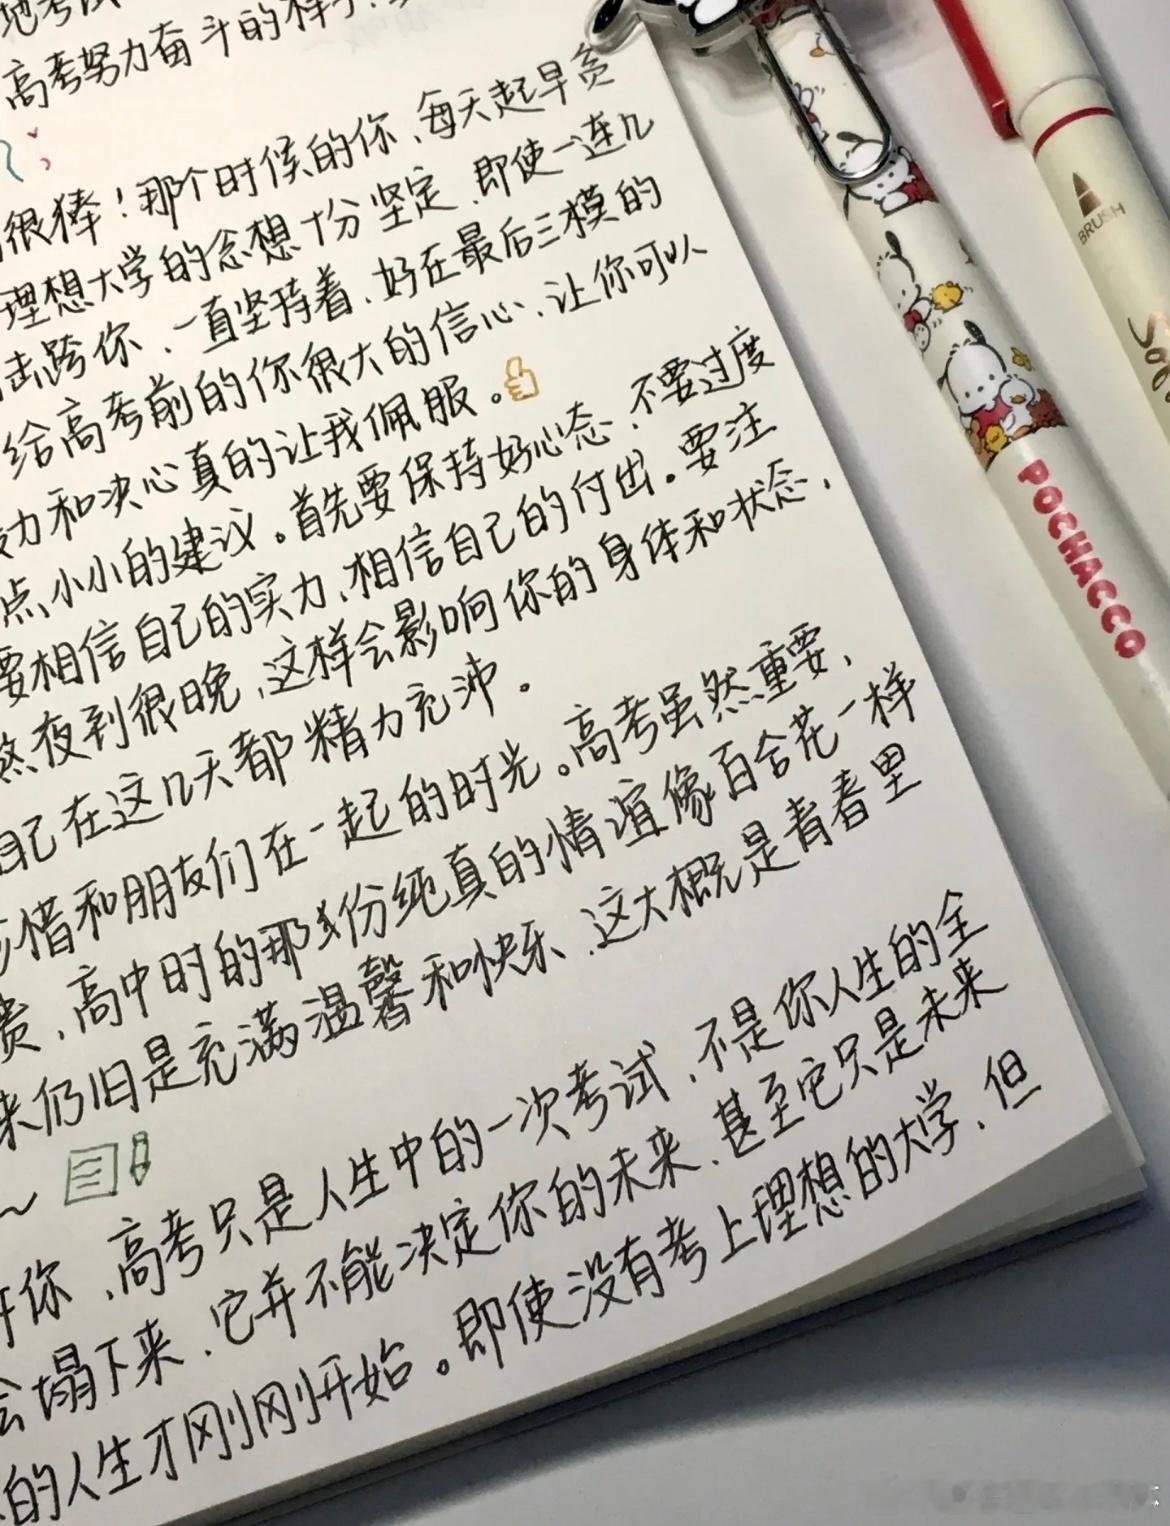 地考试
高考努力奋斗的样子
很棒！那个时候的你、每天起早贪
理想大学的念想十分坚定、即使一连几
击跨你、一直坚持着、好在最后三模的
给高考前的你很大的信心、让你可以
力和决心真的让我佩服。
点小小的建议。首先要保持好心态、不要过度
要相信自己的实力、相信自己的付出。要注
熬夜到很晚、这样会影响你的身体和状态，
自己在这几天都精力充沛。
惜和朋友们在一起的时光。高考虽然重要，
贵、高中时的那份纯真的情谊像百合花一样
来仍旧是充满温馨和快乐、这大概是青春里
～
你、高考只是人生中的一次考试、不是你人生的全
会塌下来、它并不能决定你的未来、甚至它只是未来
的人生才刚刚开始。即使没有考上理想的大学、但
POCHACCO
BRUSH